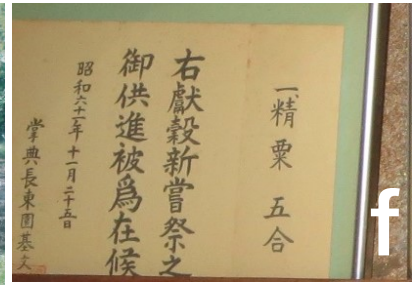 一、精粟 五合
右獻穀新嘗祭之
御供進被爲在候
昭和六十一年十一月二十五日
掌典長東園基文
f